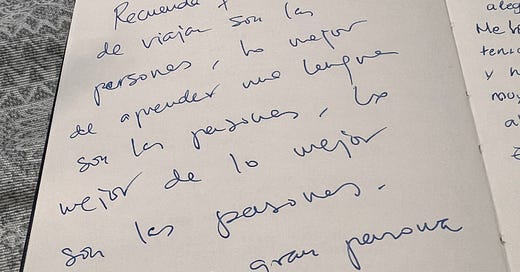 Recuerda
de viajar son las
persones, lo mejor
de aprender una lengua
son las personas, lo
mejor de lo mejor
son las personas.
gran persona
aleg
Me
tenid
y h
muy
a